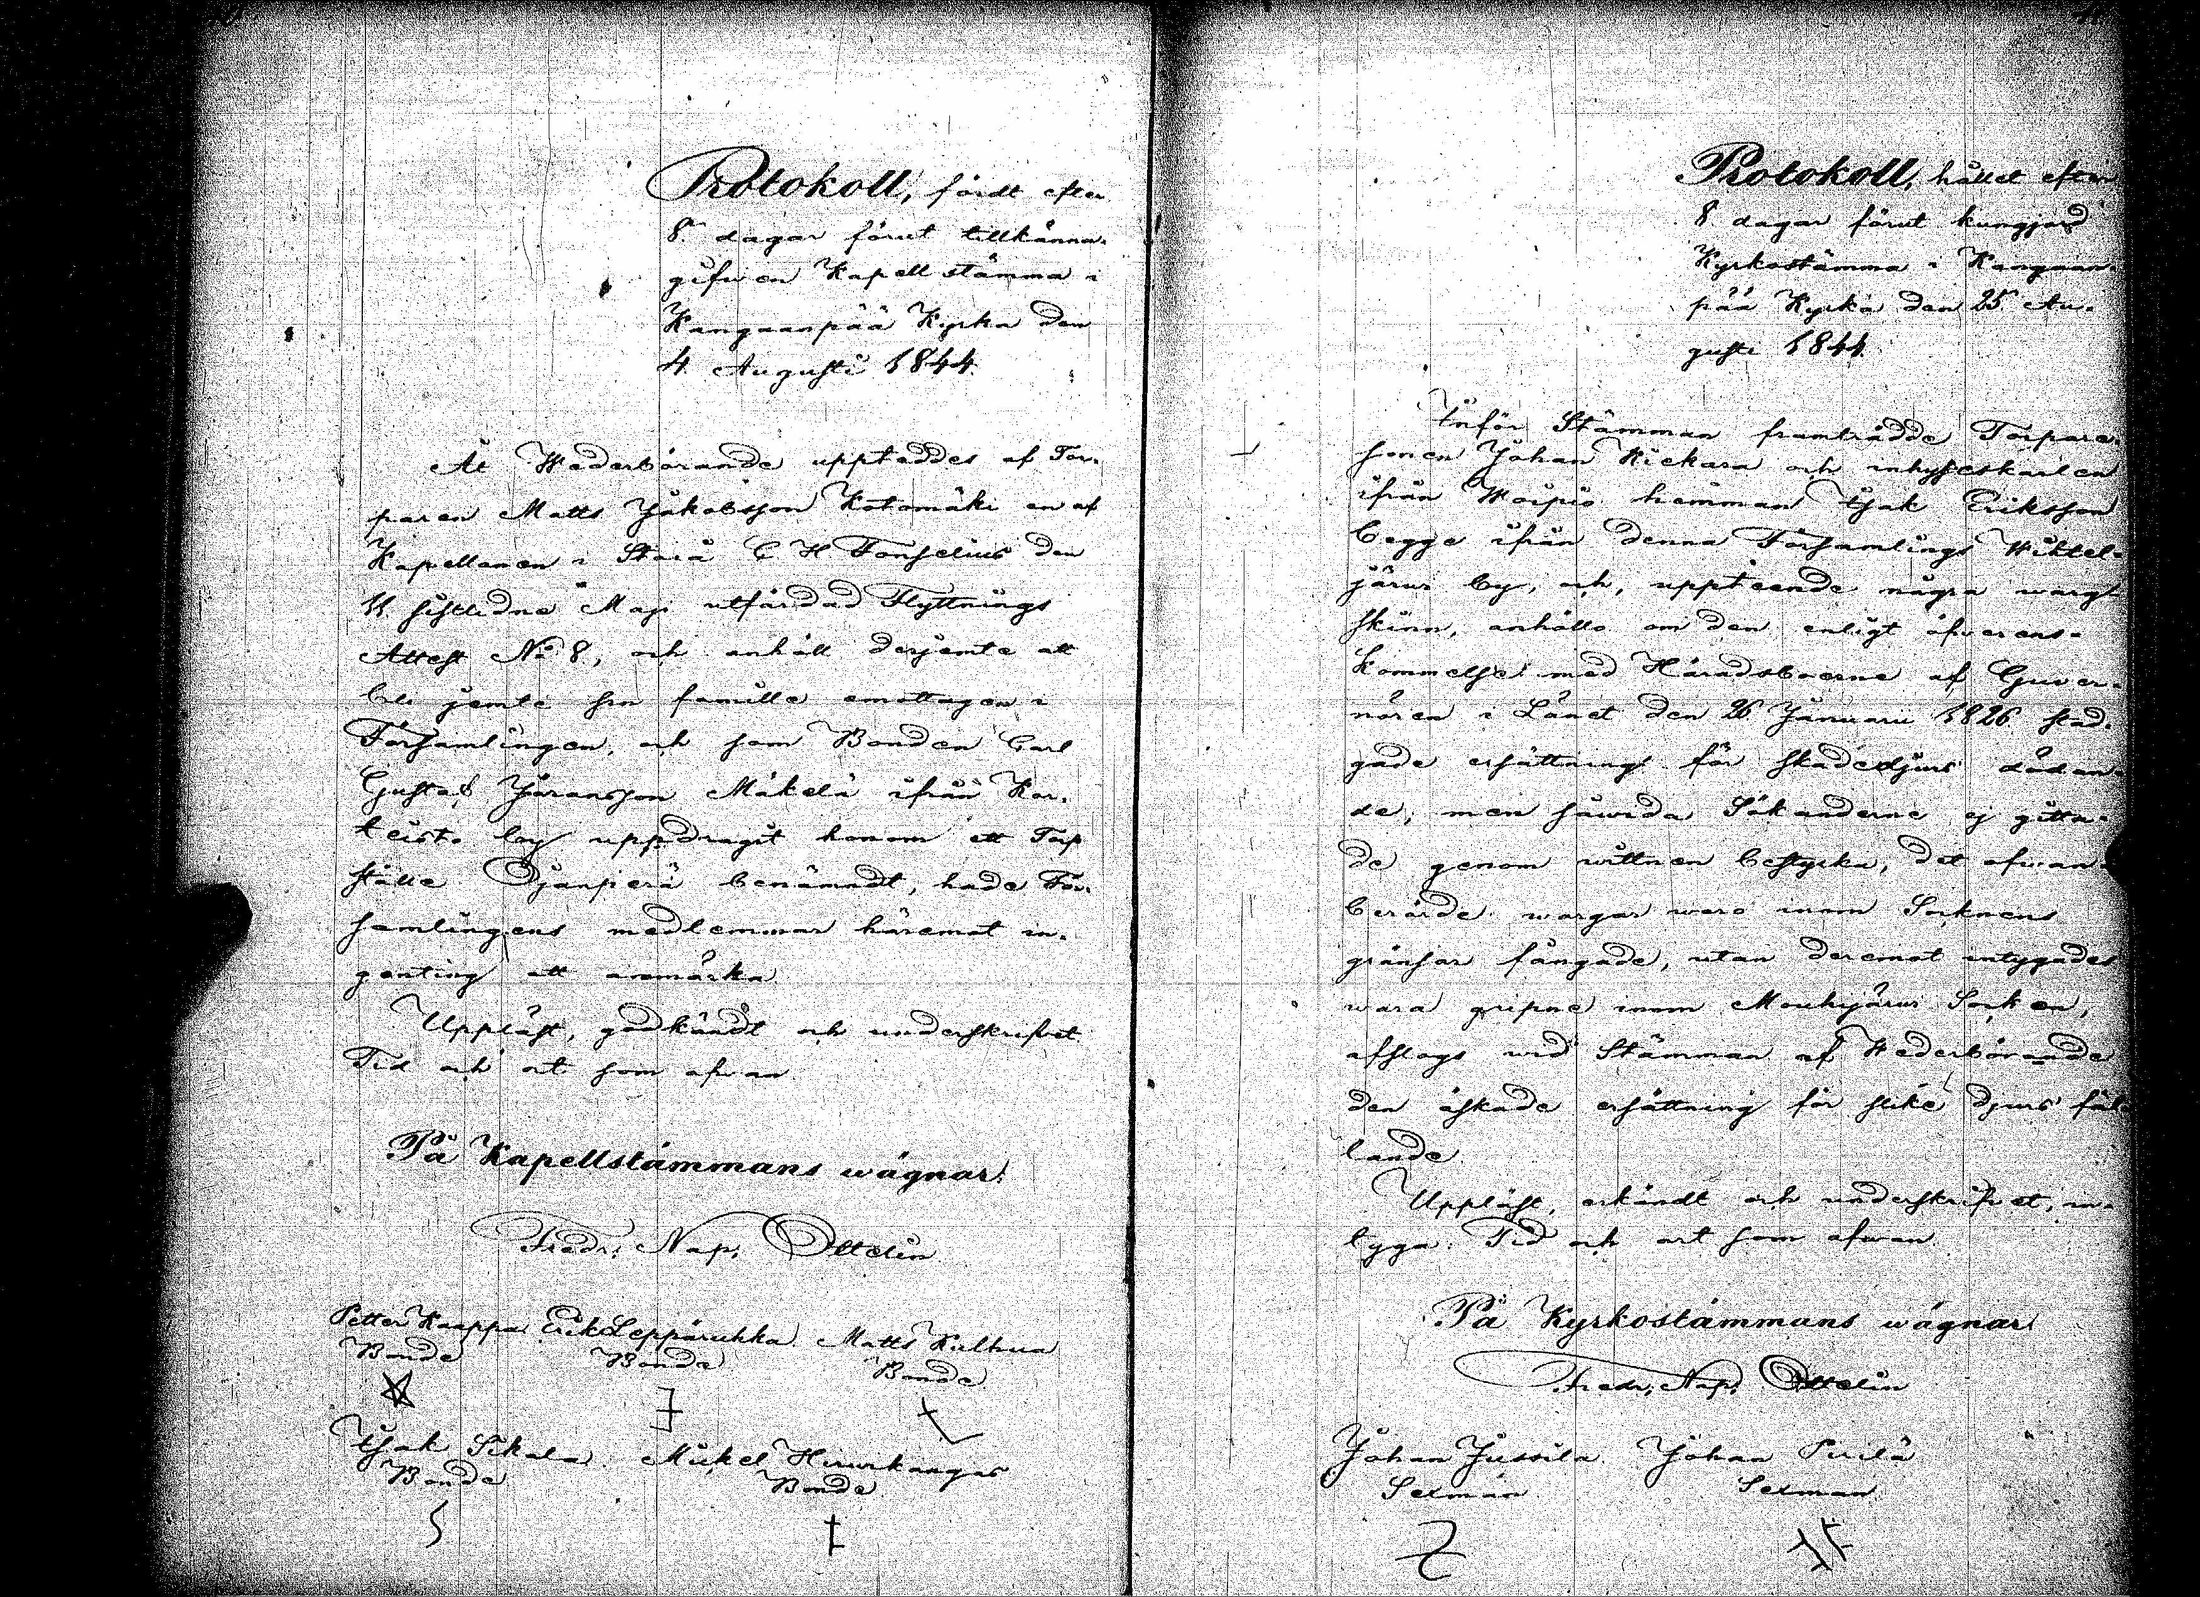 Protokoll, fördt efter
8. dagar förut tillkänna-
gifwen Kapellstämma i
Kangaanpää Kyrka den
4. Augusti 1844.
At Wederbörande uppteddes af Tor-
paren Matts Jakobsson Kotomäki en af
Kapellanen i Storå C H Fonselius den
11. sistledne Maji utfärdad Flyttnings
Attest No 8, och anhöll derjemte att
bli jemte sin famille emottagen i
Församlingen, och som Bonden Carl
Gustaf Göransson Mäkelä ifrån Kar-
teisto by uppdragit honom ett Torp
ställe Ojanperä benämndt, hade För-
samlingens medlemmar häremot in-
genting att anmärka.
Uppläst, godkändt och underskrifvet
Tid och ort som ofwan.
På Kapellstämmans wägnar:
Fredr. Nap. Ottelin
Petter Kaappa Erik Leppäruhka Matts Kulhua
Bonde Bonde Bonde
Isak Sikala Mickel Hirwikangas
Bonde Bonde
Protokoll, hållet efter
8. dagar förut kungjord
Kyrkostämma i Kangaan-
pää Kyrka den 25. Au-
gusti 1844.
Inför Stämman framträdde Torpare-
sonen Johan Kickara och inhyseskarlen
ifrån Woipio hemman Isak Eriksson
begge ifrån denna Församlings Wihtel-
järwi by, och, uppteende några warg-
skinn, anhöllo om den enligt öfwerens-
kommelse med Häradsboerne af Guwer-
nören i Länet den 26 Januarii 1826 stad-
gade ersättning för skadedjurs dödan-
de; men såwida Sökanderne ej gitta-
de genom wittnen bestyrka, det ofwan-
berörde wargar woro inom Socknens
gränsar fångade, utan deremot intygades
wara gripne inom Mouhijärwi Socken,
afslogs wid Stämman af Wederbörande
den äskade ersättning för slike djurs fäl-
lande.
Uppläst, erkändt och underskrifvet, in-
tyga. Tid och ort som ofwan.
På Kyrkostämmans wägnar
Fredr. Nap. Ottelin
Johan Jussila Johan Pirilä
Sexman Sexman